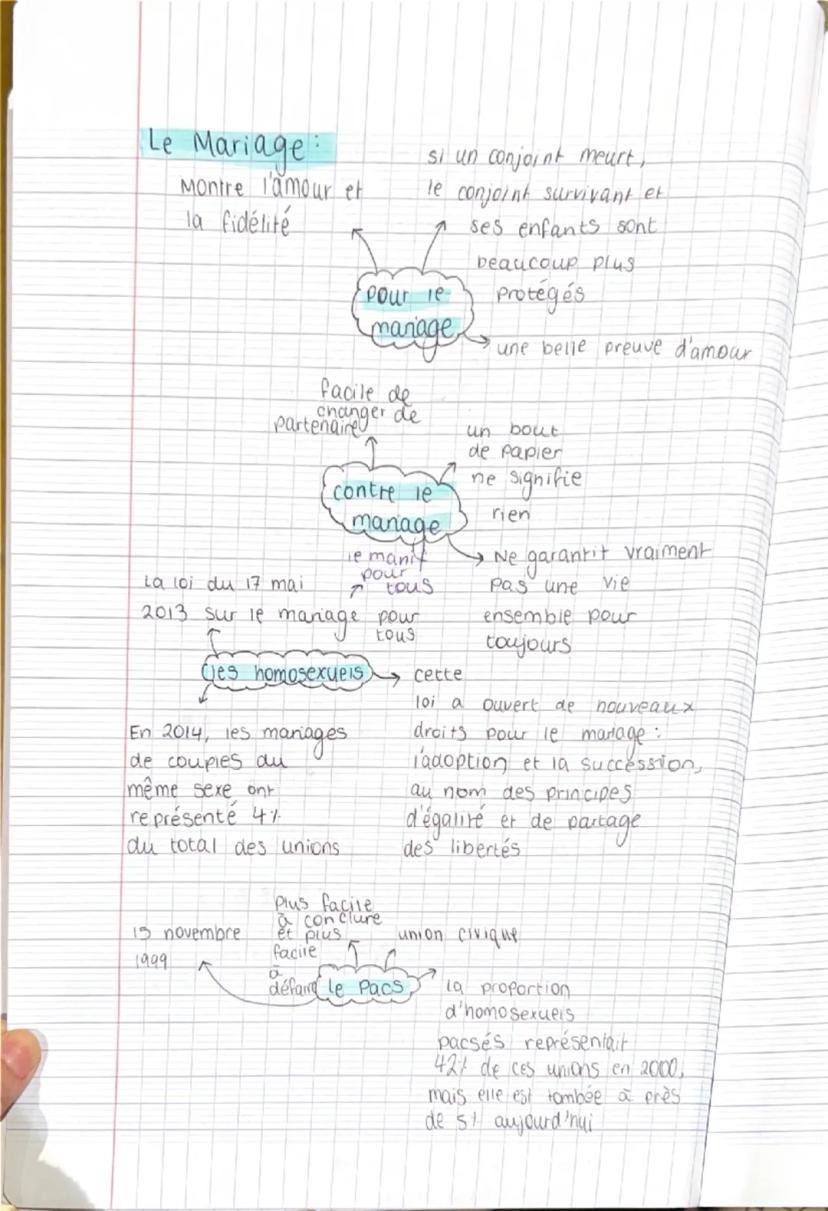 Le Mariage :
Montre l'amour et
la fidélité
si un conjoint meurt,
le conjoint survivant et
ses enfants sont
beaucoup plus
protégés
pour le
mariage
une belle preuve d'amour
facile de
changer de
partenaire
un bout
de papier
ne signifie
rien
contre le
mariage
Ne garantit vraiment
pas une vie
ensemble pour
toujours
le manif
pour
tous
La loi du 17 mai
2013 sur le mariage pour
tous
les homosexuels
cette
loi a ouvert de nouveaux
droits pour le mariage :
l'adoption et la succession,
au nom des principes
d'égalité et de partage
des libertés
En 2014, les mariages
de couples du
même sexe ont
représenté 4%
du total des unions
plus facile
à conclure
et plus
facile
à
défaire
15 novembre
1999
union civique
le Pacs
la proportion
d'homosexuels
pacsés représentait
42% de ces unions en 2000,
mais elle est tombée à près
de 5% aujourd'hui